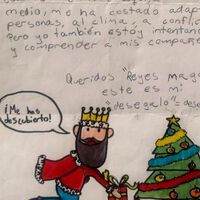 medio, me ha costado adap
personas, al clima, a conflic
Pero yo también estoy intentan
y comprender a mis compañe
Queridos "Reyes Mag
este es mi
desegalo"
¡Me has
descubierto!